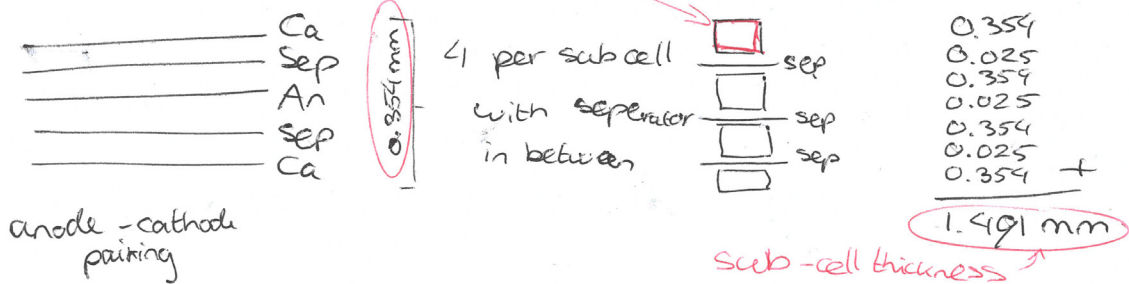 Ca
Sep
An
Sep
Ca
0.354 mm
anode - cathode
pairing
4 per subcell
with seperator
in between
sep
sep
sep
0.354
0.025
0.354
0.025
0.354
0.025
0.354 +
1.491 mm
sub-cell thickness